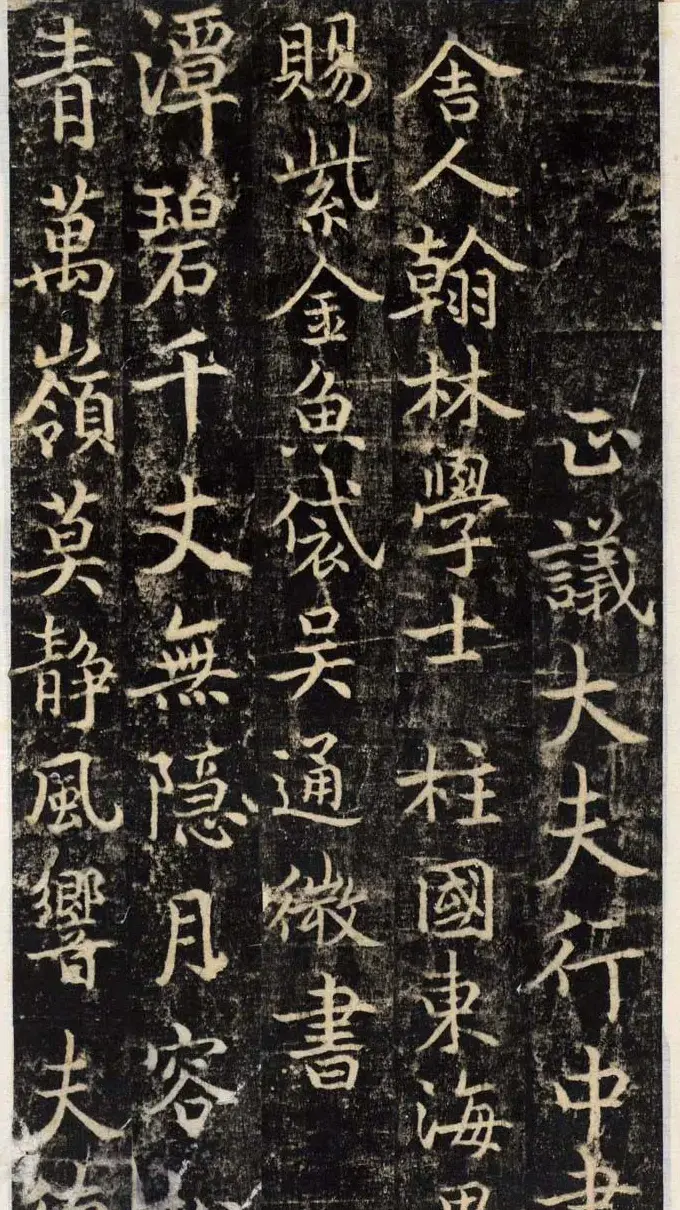 正議大夫行中書
舍人翰林學士柱國東海男
賜紫金魚袋吴通微書
潭碧千丈無隐月容
青萬嶺莫静風響夫